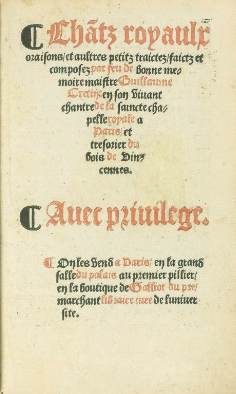 ¶ Chãtz royaulx
oraisons/et aultres petitz traictez/faictz et
composez par feu de bonne me-
moire maistre Guillaume
Cretin en son vivant
chantre de la saincte cha-
pelle royale a
Paris/et
tresorier du
bois de Vin-
cennes.
¶ Avec privilege.
¶ On les vend a Paris/en la grand
salle du palais au premier pillier/
en la boutique de Galliot du pre
marchant libraire iure de luniver
site.